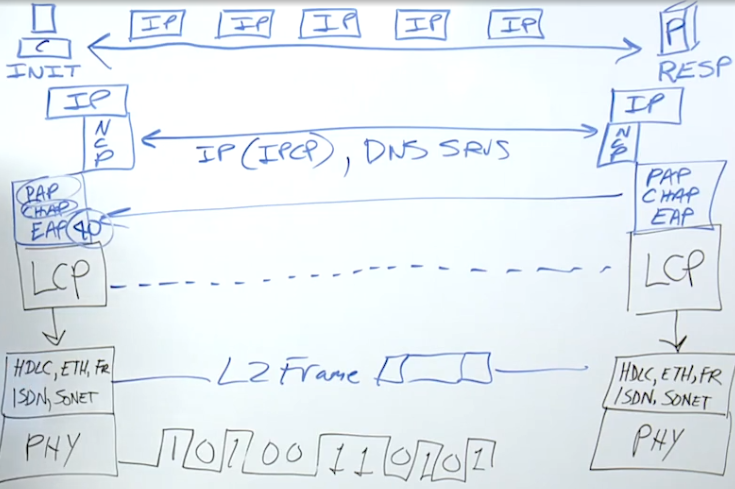 IP IP IP IP IP
C
INIT
R
RESP
IP
IP
NCP
NCP
IP (IPCP), DNS SRVS
PAP
CHAP
EAP 40
PAP
CHAP
EAP
LCP
LCP
HDLC, ETH, FR
ISDN, SONET
L2 Frame
HDLC, ETH, FR
ISDN, SONET
PHY
10100110101
PHY